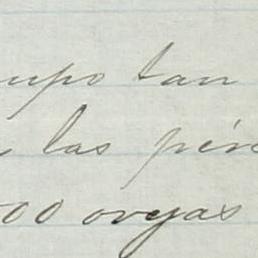 upo tan
las pér
500 ovejas